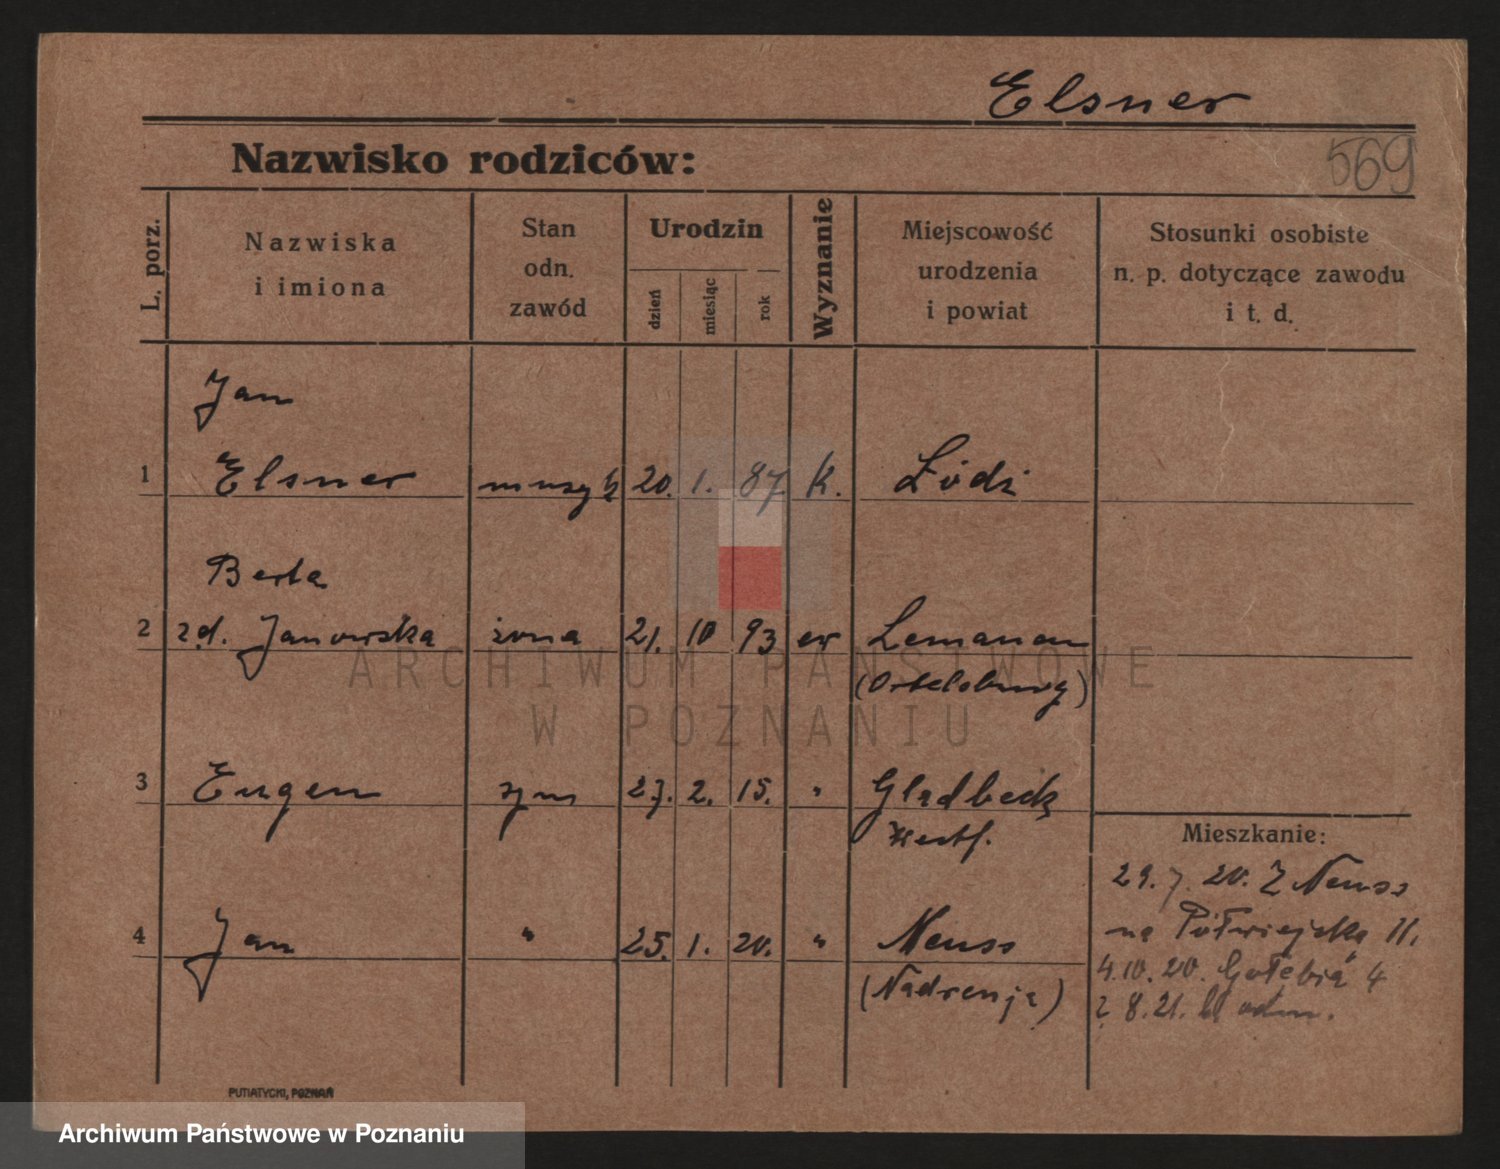 Elsner
Nazwisko rodziców:
569
L. porz.
Nazwiska
i imiona
Stan
odn.
zawód
Urodzin
dzień
miesiąc
rok
Wyznanie
Miejscowość
urodzenia
i powiat
Stosunki osobiste
n. p. dotyczące zawodu
i t. d.
Jan
1 Elsner 20. 1. 87 K. Łódź
Berta
2 zd. Janowska żona 21. 10 93 ew Lemanen
(Ortelsburg)
3 Eugen syn 27. 2. 15. " Gladbeck
Westf.
Mieszkanie:
29. 7. 20. Z Neuss
4 Jan " 25. 1. 20. " Neuss
na Półwiejską 11.
(Nadrenja)
4.10. 20. Gołębia 4
8. 21.
PUTIATYCKI, POZNAŃ
ARCHIWUM PAŃSTWOWE
W POZNANIU
Archiwum Państwowe w Poznaniu